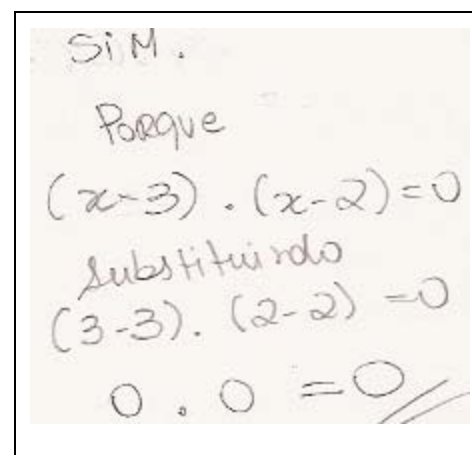 SiM.
Porque
(x-3) . (x-2) = 0
Substituindo
(3-3) . (2-2) = 0
0 . 0 = 0